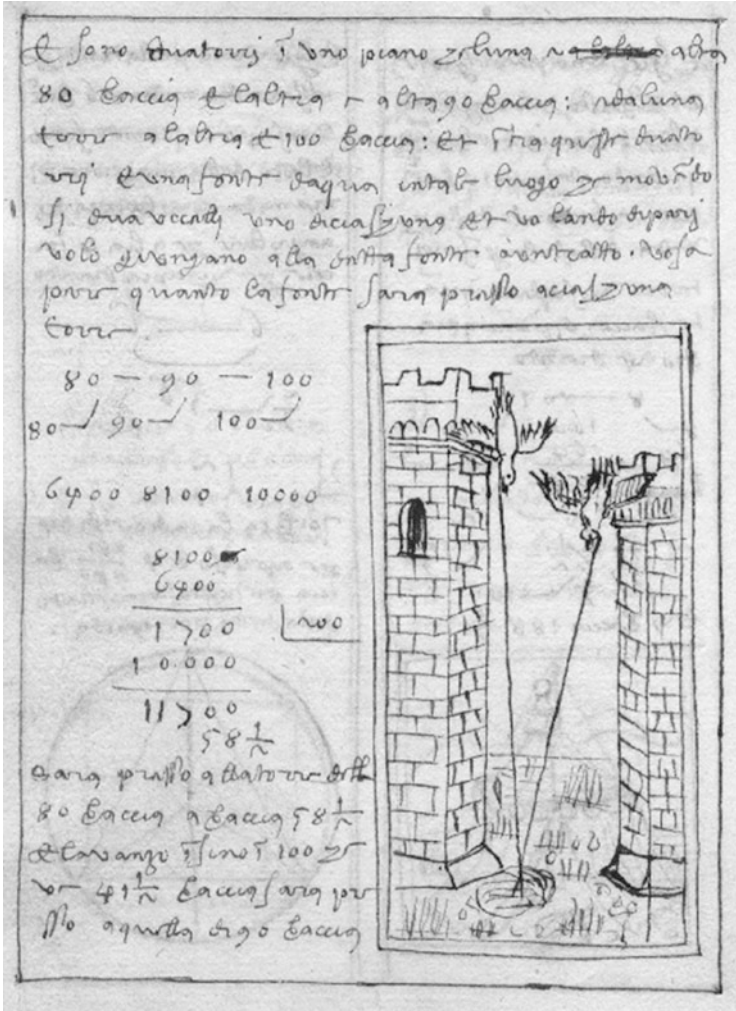 E sono duatorri ī uno piano zeluna alta
80 bacci elaltra e alta 90 bacci: edaluna
torre alaltra e 100 bacci: Et ītra queste duato
rri e una fonte daqua intale luogo ze movēdo
si dua uccelli uno diciaszuno et volando dipari
volo giungano alla detta fonte auntratto. vosa
pere quanto la fonte sara presso aciaszuna
torre.
80 — 90 — 100
80 90 100
6400 8100 10000
8100
6400
1700 200
10.000
11700
58 1/2
Sara presso allatorre delle
80 bacci abacci 58 1/2
elavanzo īsino ī 100 ze
41 1/2 bacci sara pre
sso aquella di 90 bacci